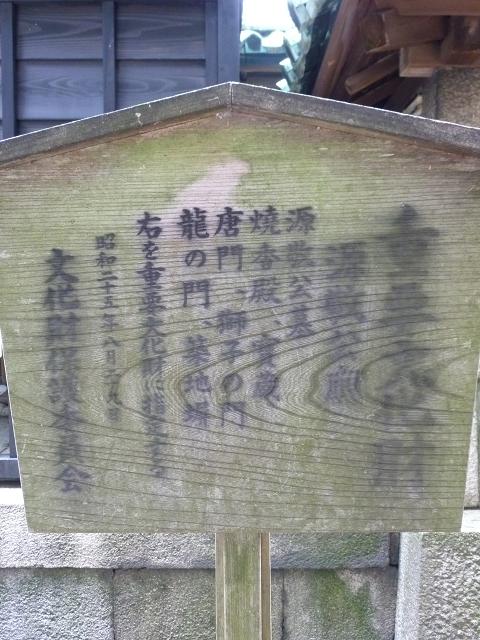 重要文化財
源敬公廟
源敬公墓
焼香殿、宝蔵
唐門、獅子の門
龍の門、墓地塀
右を重要文化財に指定する
昭和二十五年八月二十九日
文化財保護委員会